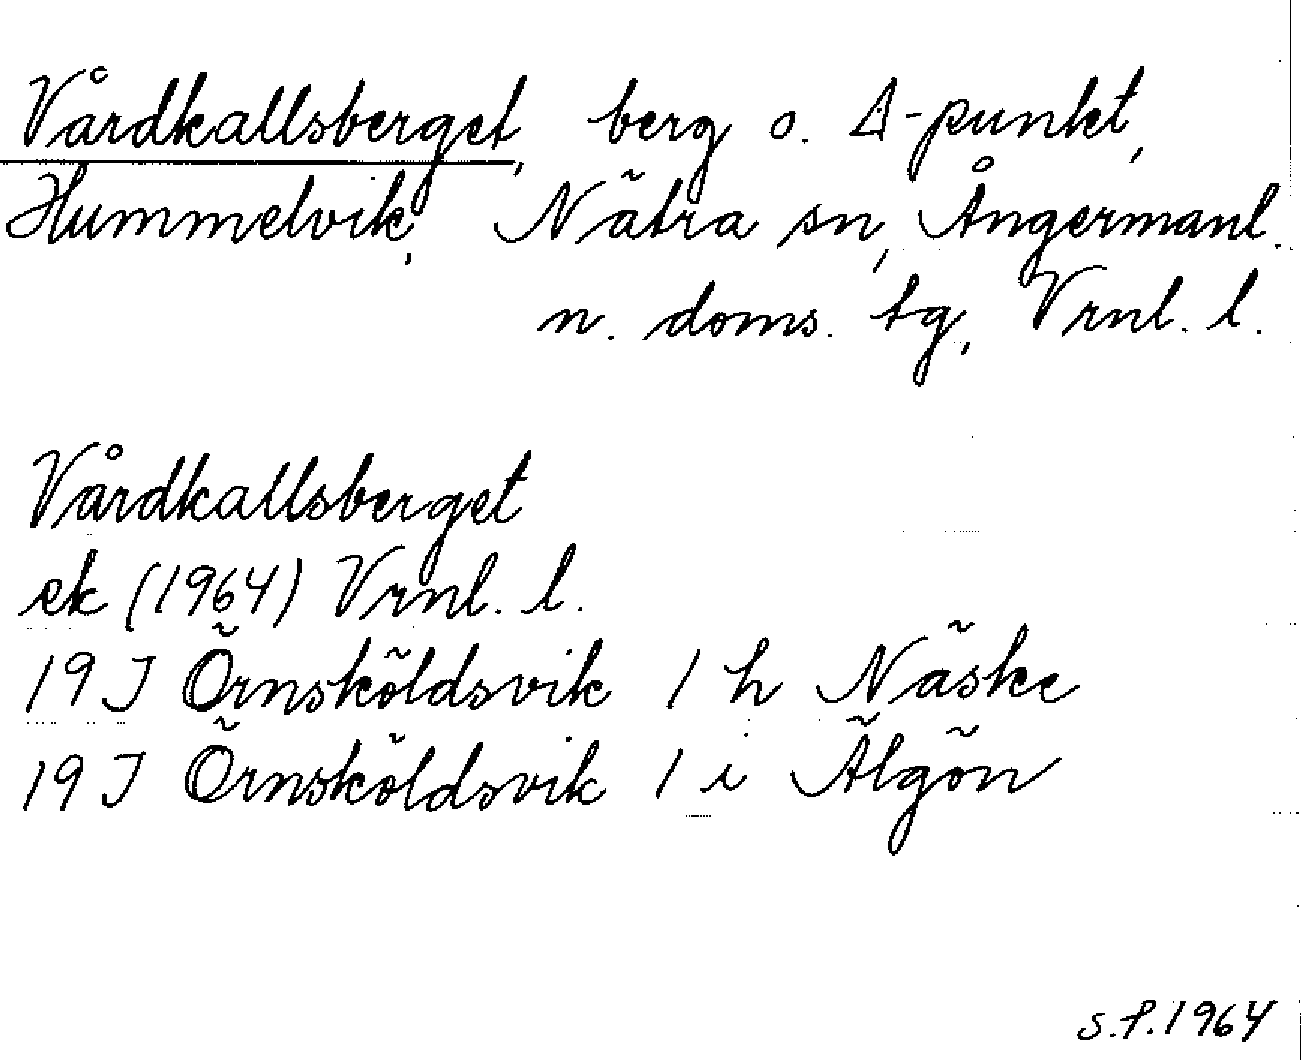 Vårdkallsberget, berg o. Δ-punkt,
Hummelvik, Nätra sn, Ångermanl.
n. doms. tg, Vrnl. l.
Vårdkallsberget
ek (1964) Vrnl. l.
19 J Örnsköldsvik 1 h Näske
19 J Örnsköldsvik 1 i Älgön
S.P. 1964